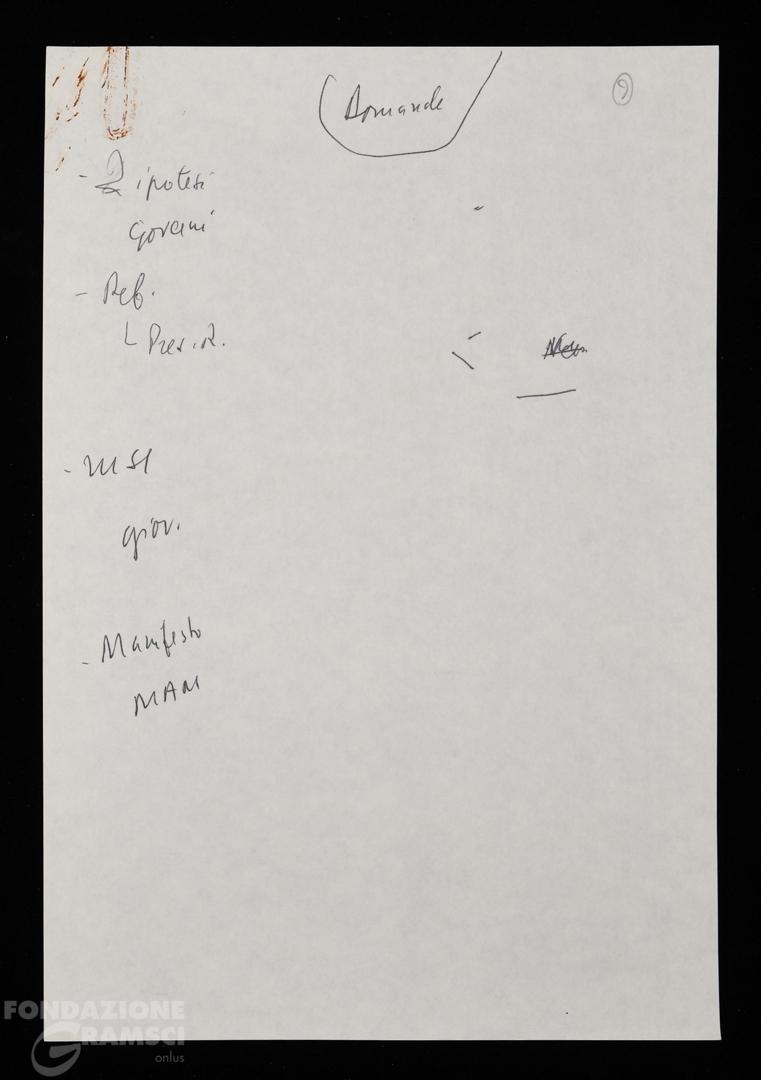 Domande
9
- 2 ipotesi
Govani
- Ref.
└ Pres. R.
- MSI
giov.
- Manifesto
MAM
FONDAZIONE
GRAMSCI
onlus